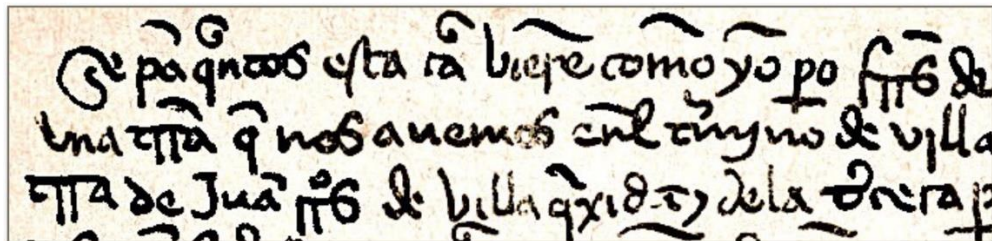 Se pā qñtos esta cā vierē comō yō po frrs̄ de
vna trrā q̄ nos auemos enl tmyno de villa
trra de Juā prrs de villa q̄xid τ dela tercera p